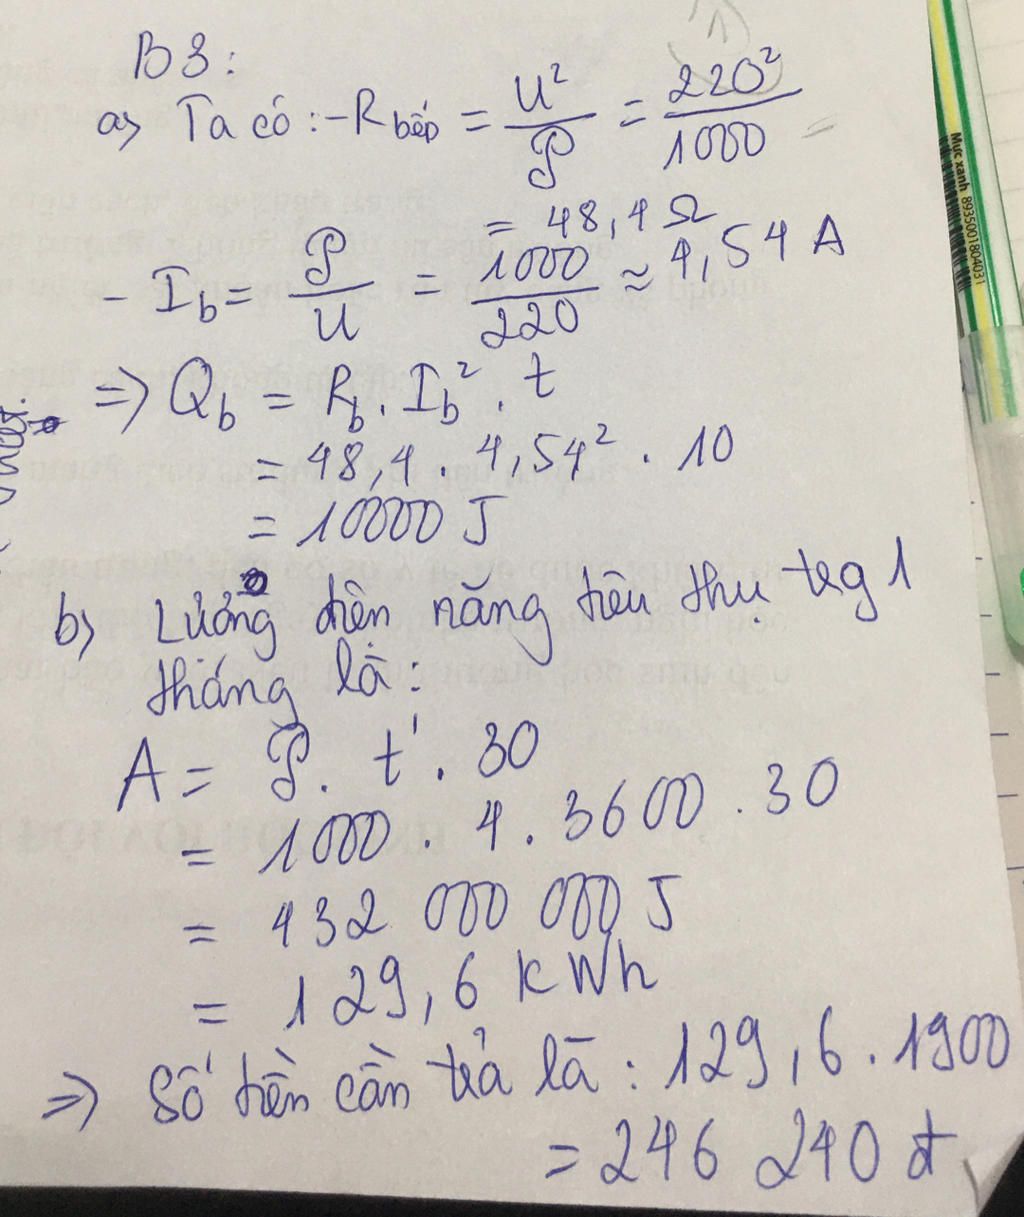 B3:
a) Ta có: - R bếp = U²/P = 220²/1000
= 48,4 Ω
- I_b = P/U = 1000/220 ≈ 4,54 A
=> Q_b = R_b . I_b² . t
= 48,4 . 4,54² . 10
= 10000 J
b) Lượng điện năng tiêu thụ trg 1
tháng là:
A = P . t' . 30
= 1000 . 4 . 3600 . 30
= 432 000 000 J
= 129,6 kWh
=> Số tiền cần trả là : 129,6 . 1900
= 246 240 đ
Mực xanh 8935001804031